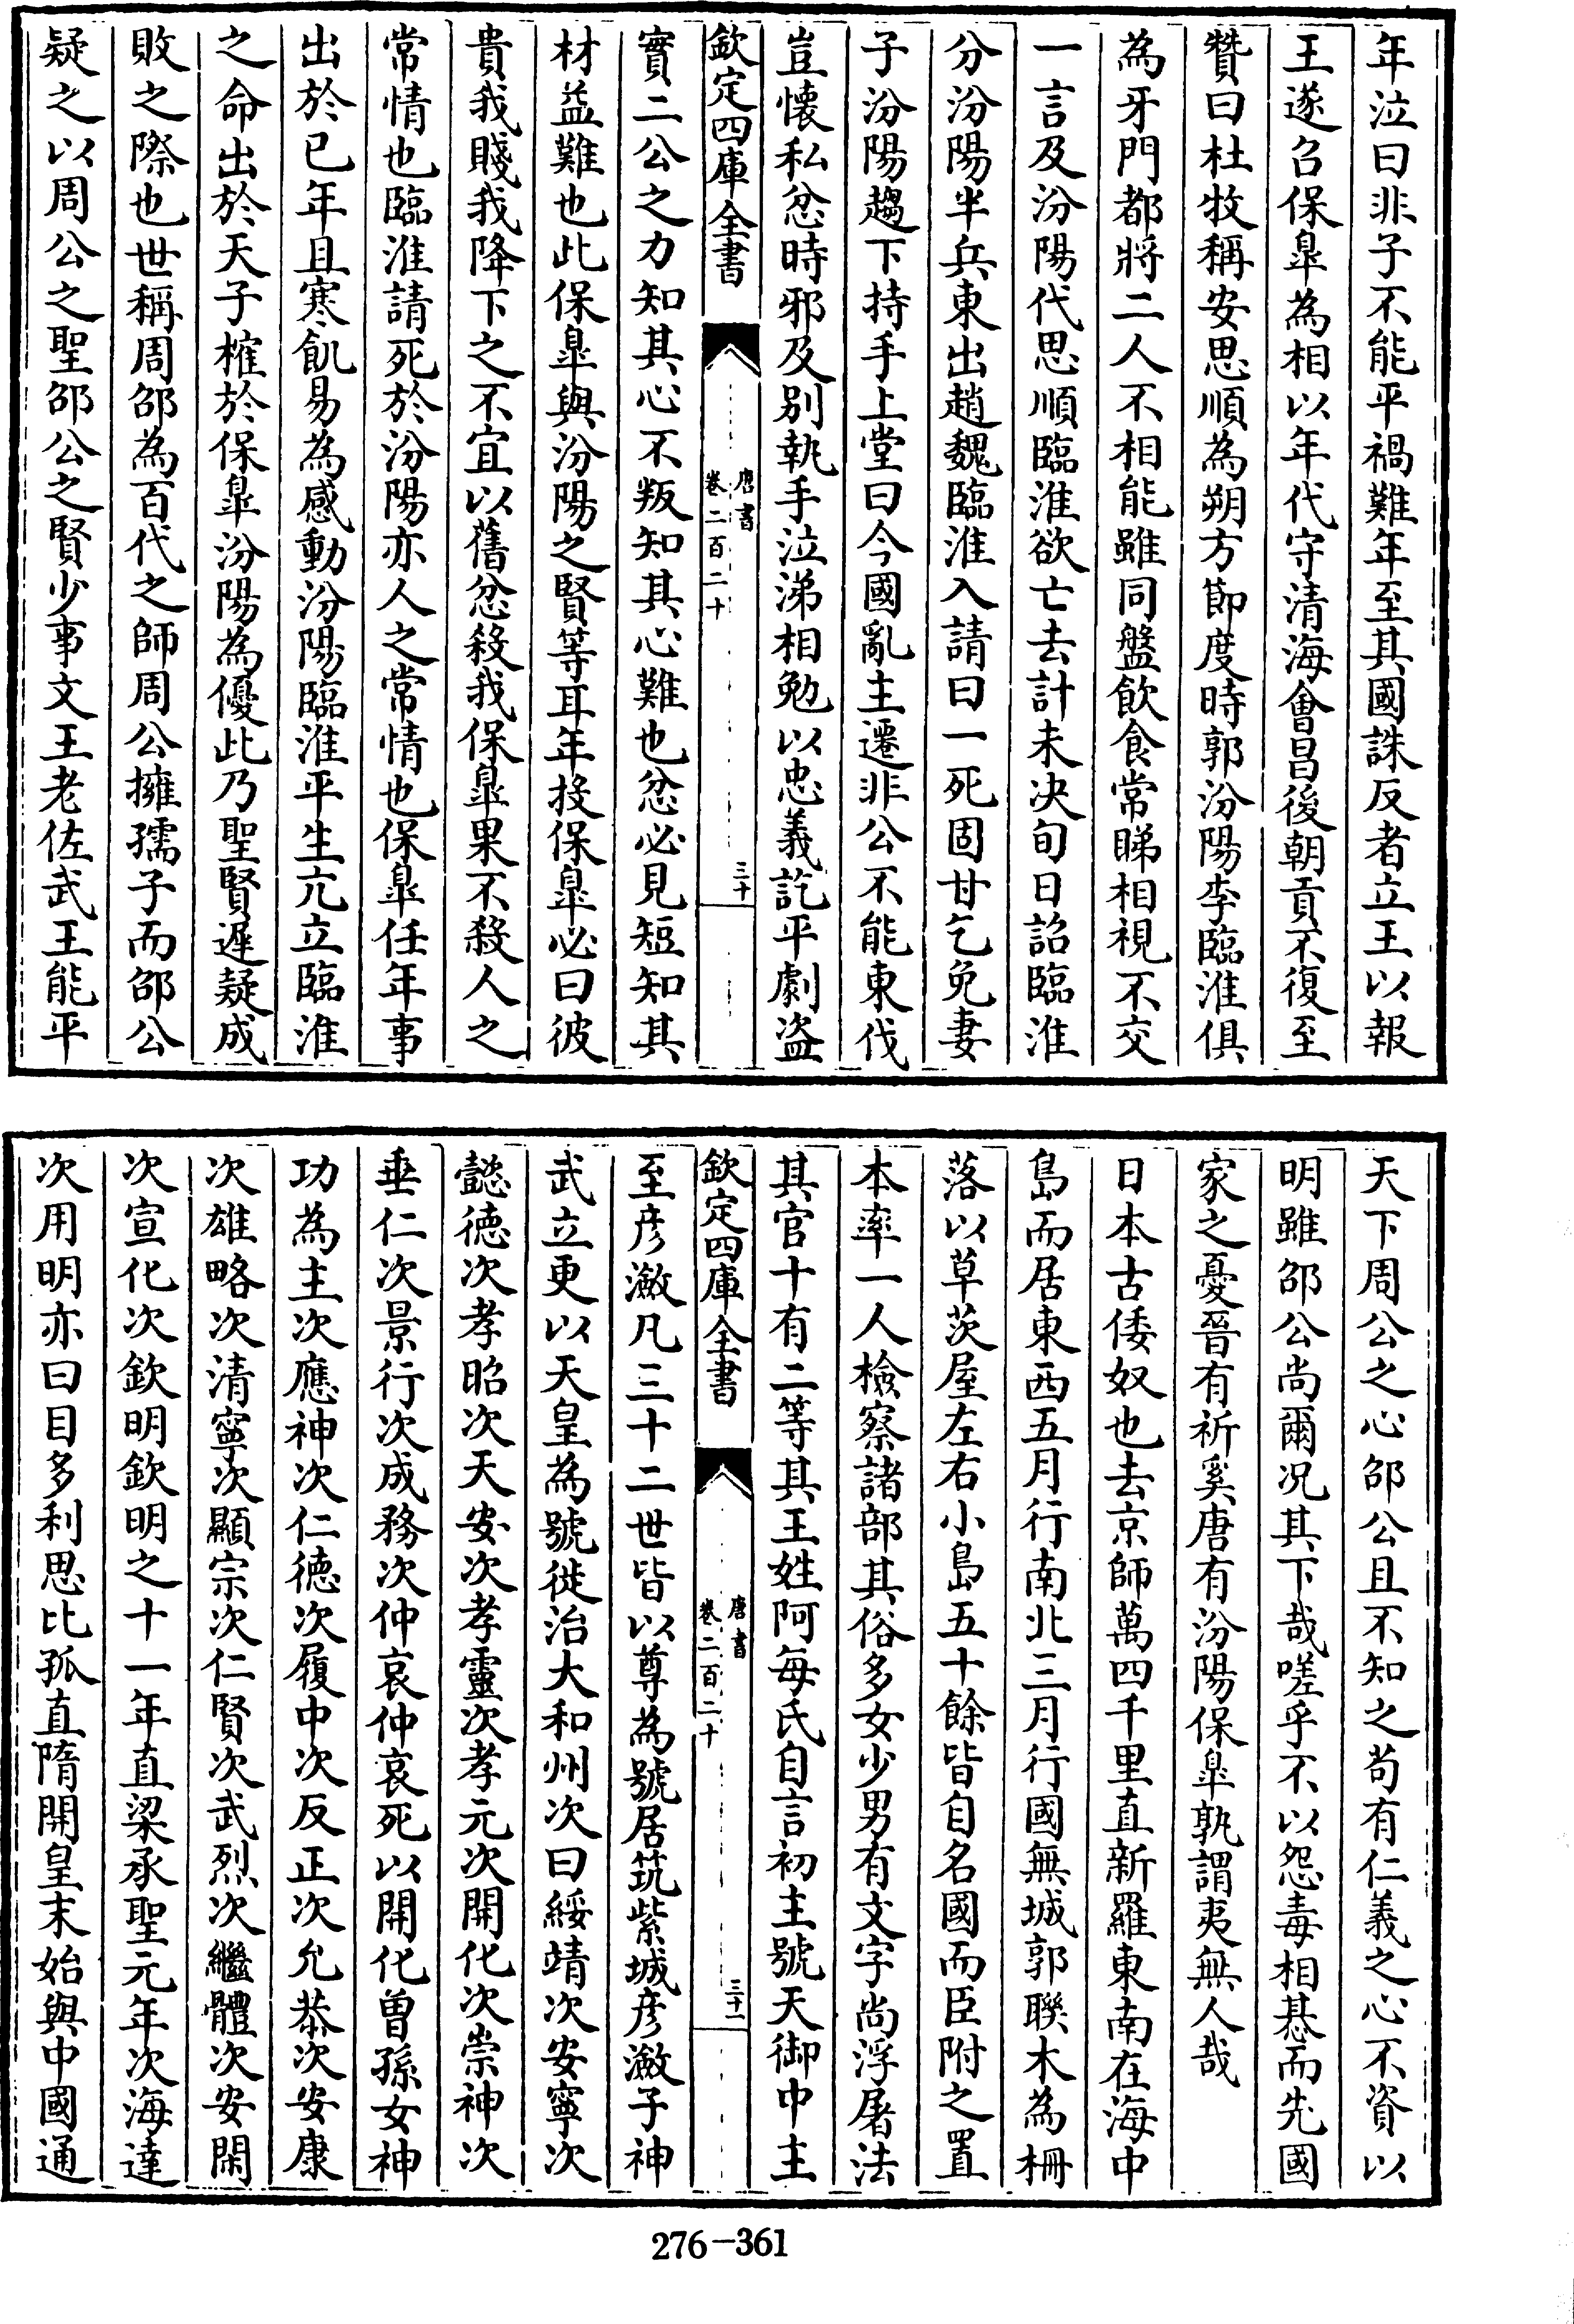 年泣曰非子不能平禍難年至其國誅反者立王以報
王遂召保臯為相以年代守清海會昌後朝貢不復至
贊曰杜牧稱安思順為朔方節度時郭汾陽李臨淮俱
為牙門都將二人不相能雖同盤飲食常睇相視不交
一言及汾陽代思順臨淮欲亡去計未决旬日詔臨淮
分汾陽半兵東出趙魏臨淮入請曰一死固甘乞免妻
子汾陽趨下持手上堂曰今國亂主遷非公不能東伐
豈懐私忿時邪及别執手泣涕相勉以忠義訖平劇盗
欽定四庫全書
唐書
卷二百二十
三十
實二公之力知其心不叛知其心難也忿必見短知其
材益難也此保臯與汾陽之賢等耳年投保臯必曰彼
貴我賤我降下之不宜以舊忿殺我保臯果不殺人之
常情也臨淮請死於汾陽亦人之常情也保臯任年事
出於已年且寒飢易為感動汾陽臨淮平生亢立臨淮
之命出於天子榷於保臯汾陽為優此乃聖賢遲疑成
敗之際也世稱周邵為百代之師周公擁孺子而邵公
疑之以周公之聖邵公之賢少事文王老佐武王能平
天下周公之心邵公且不知之苟有仁義之心不資以
明雖邵公尚爾况其下哉嗟乎不以怨毒相惎而先國
家之憂晉有祈奚唐有汾陽保臯孰謂夷無人哉
日本古倭奴也去京師萬四千里直新羅東南在海中
島而居東西五月行南北三月行國無城郭聯木為柵
落以草茨屋左右小島五十餘皆自名國而臣附之置
本率一人檢察諸部其俗多女少男有文字尚浮屠法
其官十有二等其王姓阿每氏自言初主號天御中主
欽定四庫全書
唐書
卷二百二十
三十一
至彦瀲凡三十二世皆以尊為號居筑紫城彦瀲子神
武立更以天皇為號徙治大和州次曰綏靖次安寧次
懿徳次孝昭次天安次孝靈次孝元次開化次崇神次
垂仁次景行次成務次仲哀仲哀死以開化曾孫女神
功為主次應神次仁徳次履中次反正次允恭次安康
次雄略次清寧次顯宗次仁賢次武烈次繼體次安閑
次宣化次欽明欽明之十一年直梁承聖元年次海達
次用明亦曰目多利思比孤直隋開皇末始與中國通
276-361